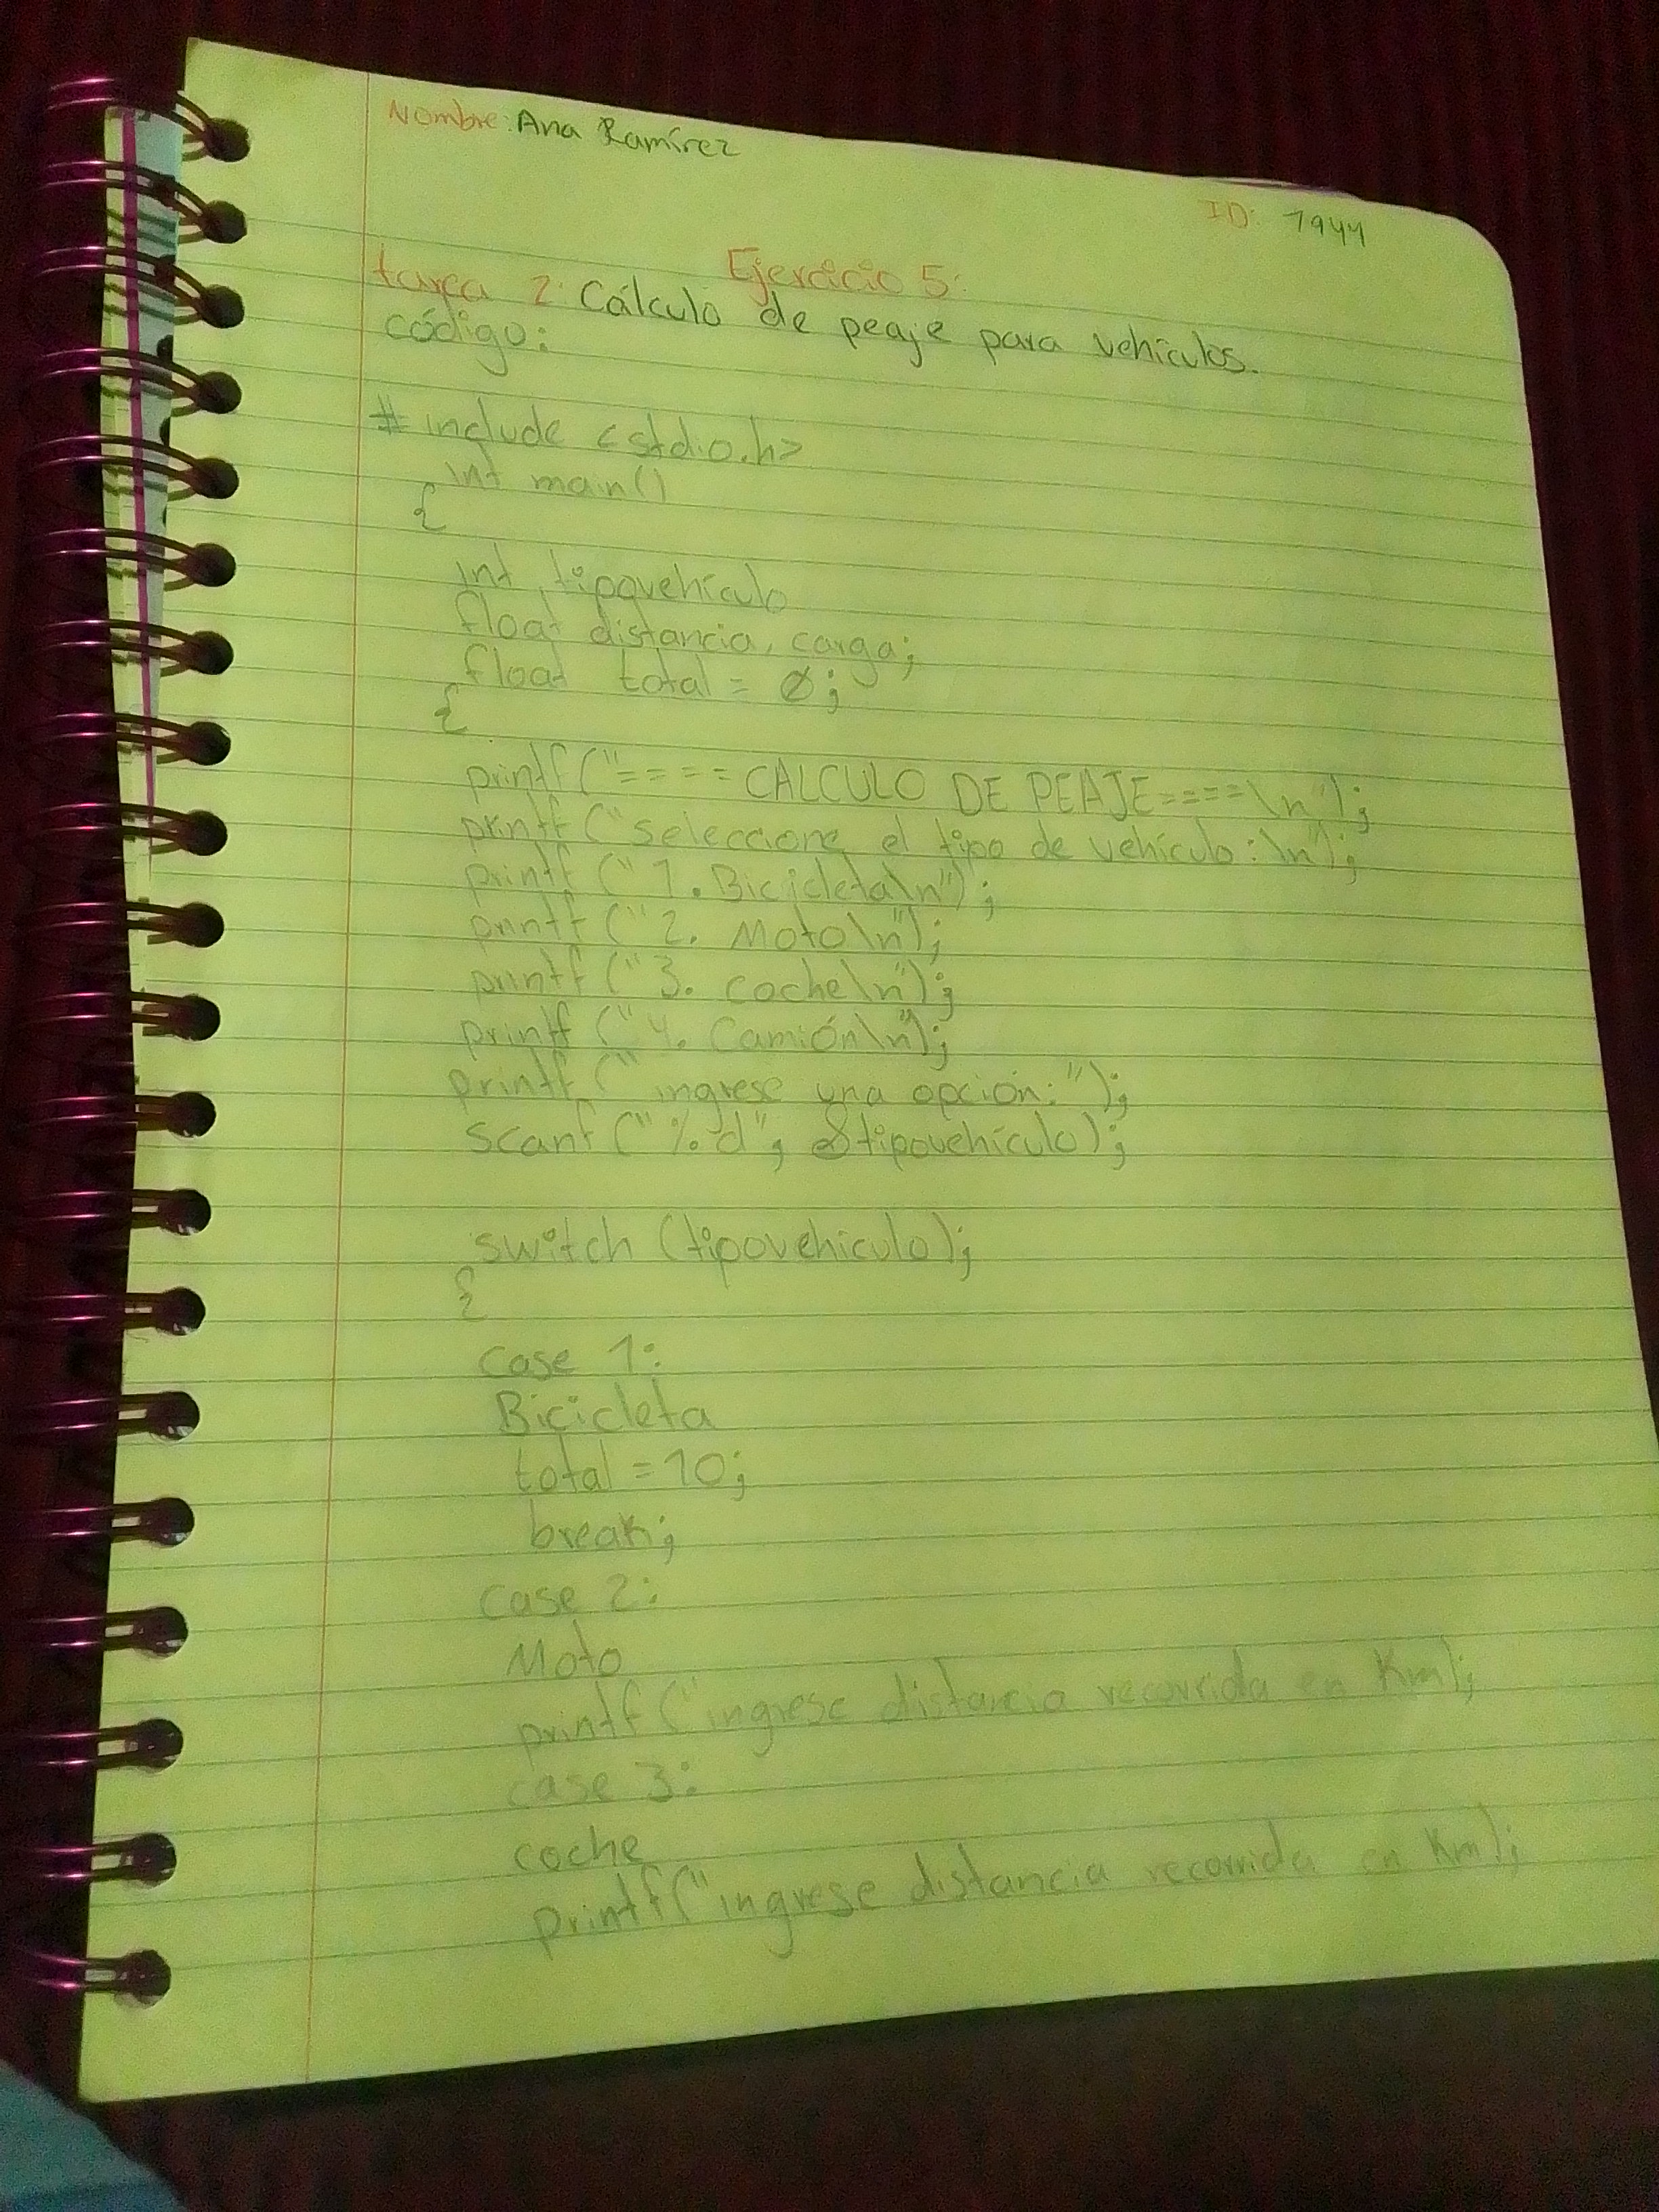 Nombre: Ana Ramírez
ID: 1944
Ejercicio 5:
tarea 2: Cálculo de peaje para vehículos.
código:
# include <stdio.h>
int main()
{
int tipovehículo
float distancia, carga;
float total = 0;
{
printf ("==== CALCULO DE PEAJE====\n");
printf ("seleccione el tipo de vehículo:\n");
printf ("1. Bicicleta\n");
printf ("2. Moto\n");
printf ("3. coche\n");
printf ("4. Camión\n");
printf (" ingrese una opción: ");
scanf ("%d", &tipovehículo);
switch (tipovehiculo);
{
case 1:
Bicicleta
total = 10;
break;
case 2:
Moto
printf ("ingrese distancia recorrida en Km);
case 3:
coche
printf ("ingrese distancia recorrida en Km);